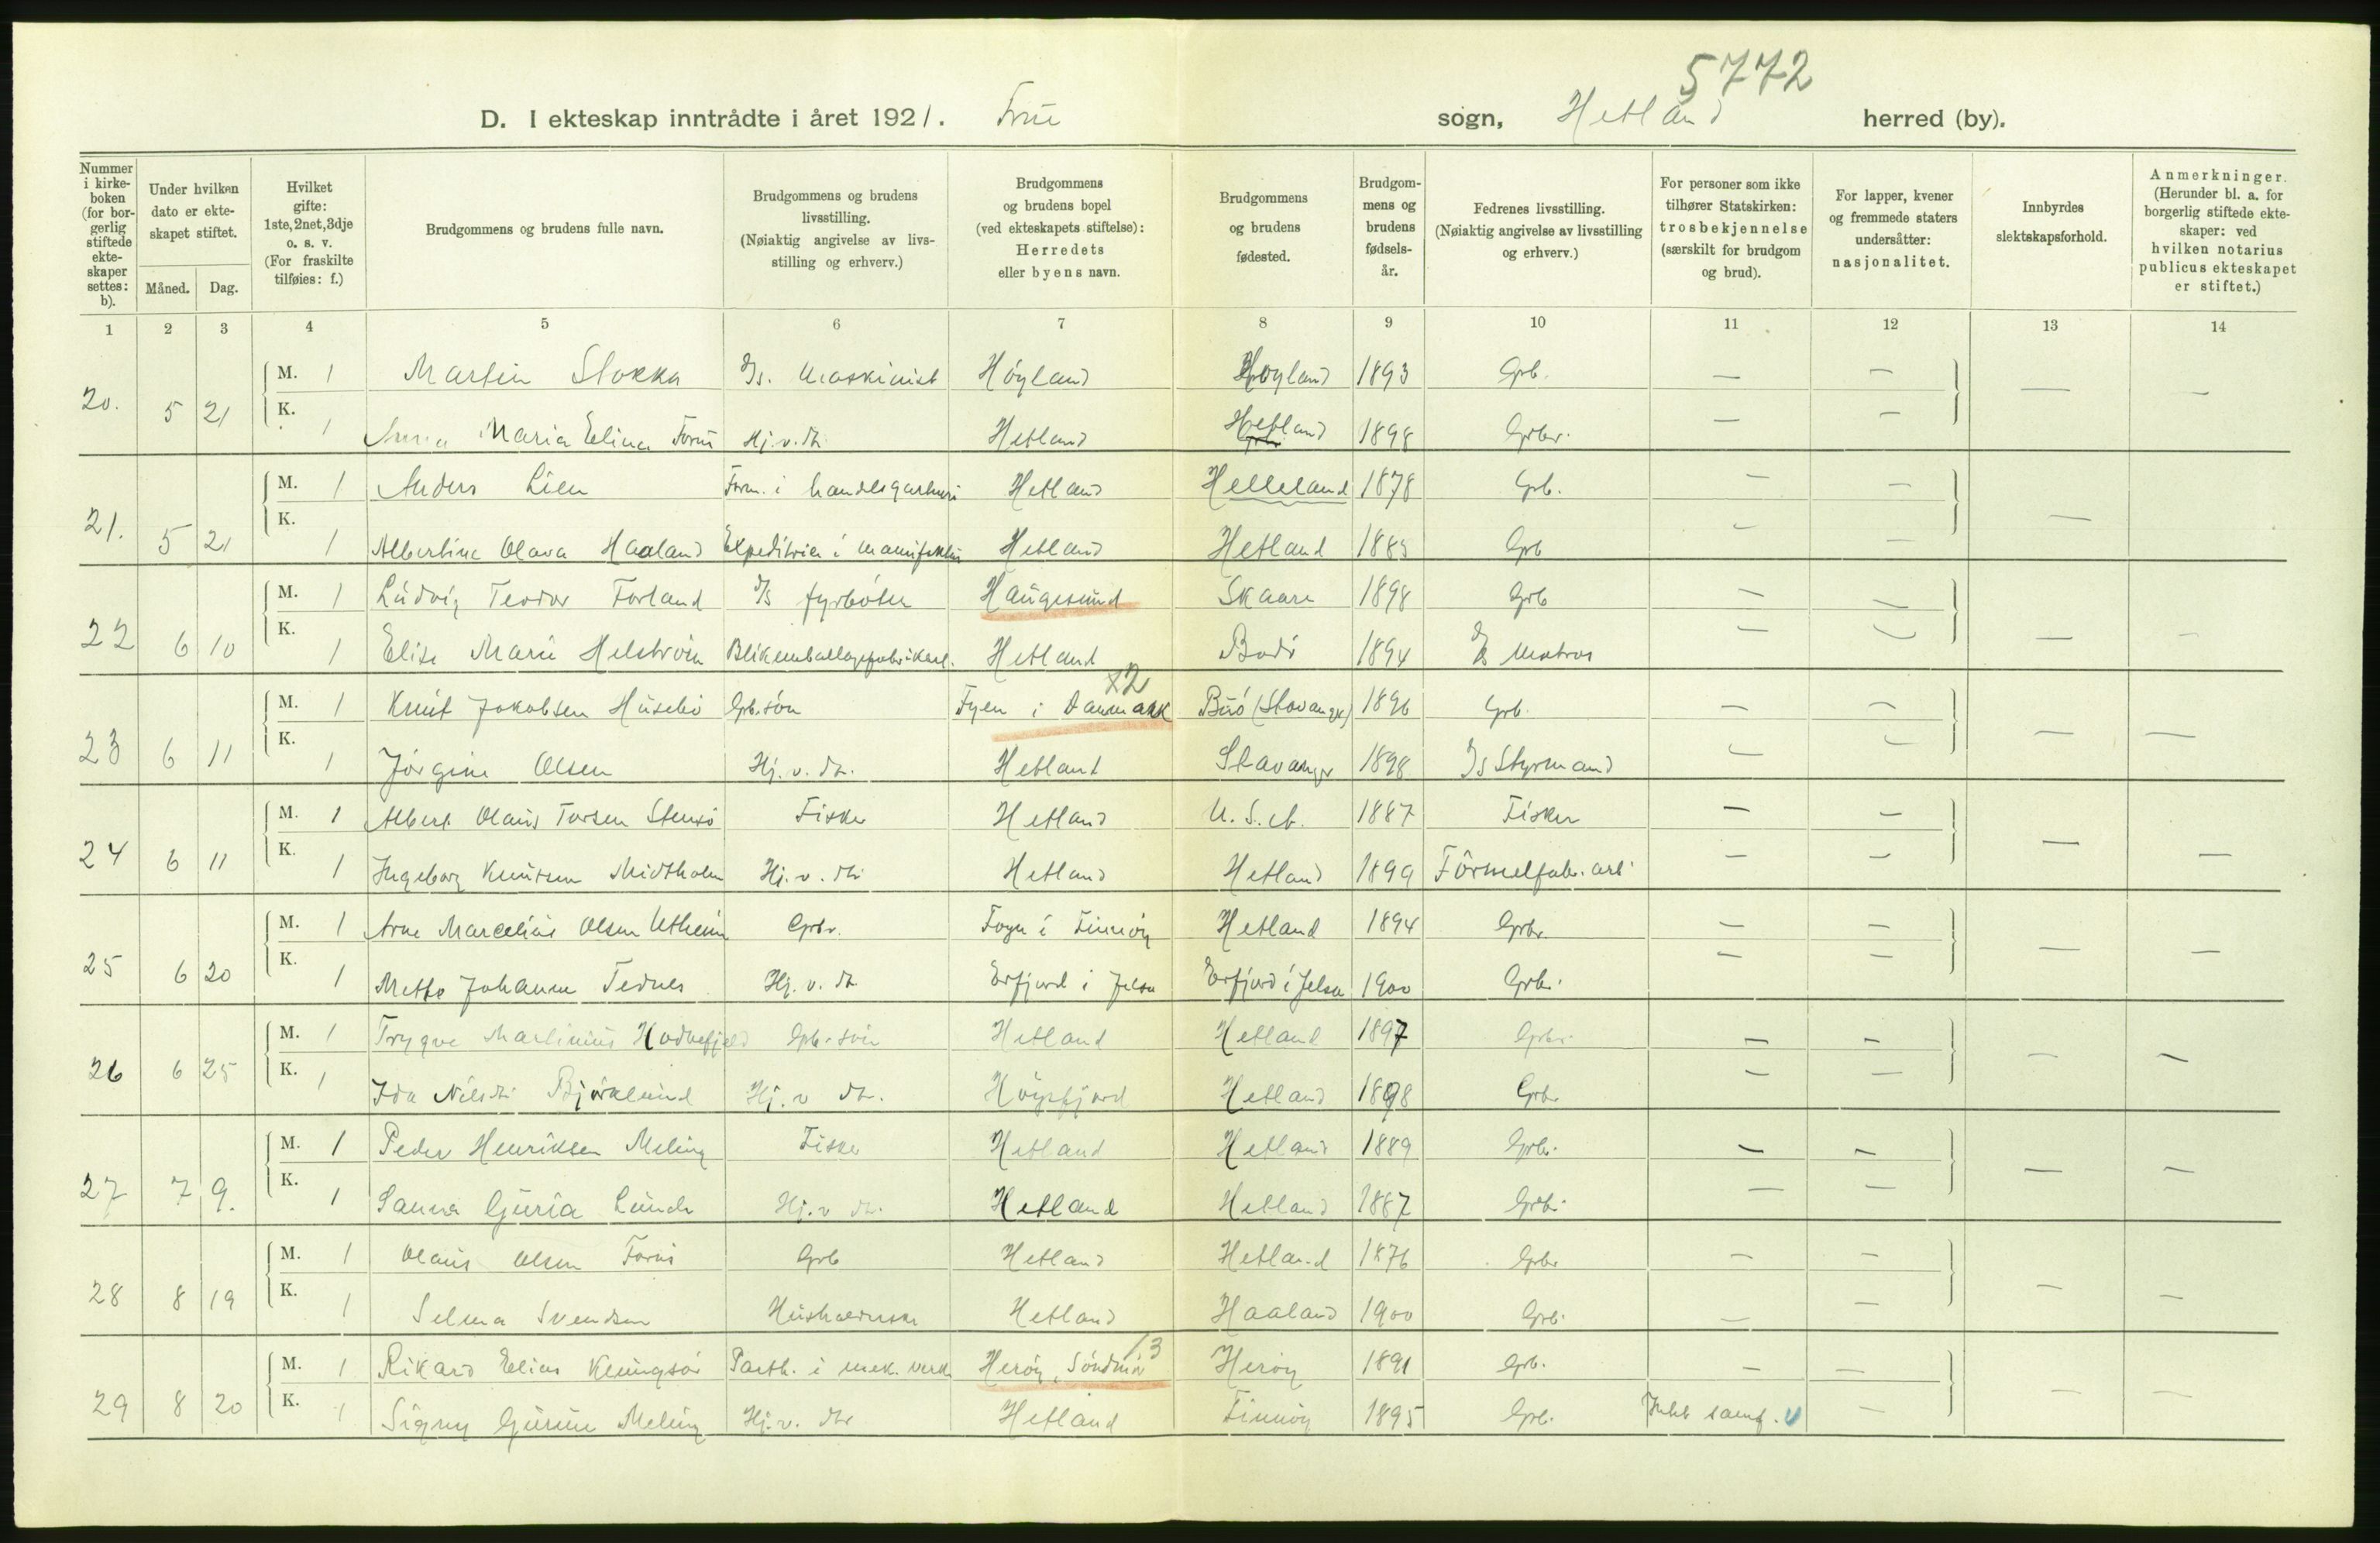 5772
D. I ekteskap inntrådte i året 1921. Frue sogn, Hetland herred (by).
Nummer i kirkeboken (for borgerlig stiftede ekteskaper settes: b).
Under hvilken dato er ekteskapet stiftet.
Måned. Dag.
Hvilket gifte: 1ste, 2net, 3dje o. s. v. (For fraskilte tilføies: f.)
Brudgommens og brudens fulle navn.
Brudgommens og brudens livsstilling. (Nøiaktig angivelse av livsstilling og erhverv.)
Brudgommens og brudens bopel (ved ekteskapets stiftelse): Herredets eller byens navn.
Brudgommens og brudens fødested.
Brudgommens og brudens fødselsår.
Fedrenes livsstilling. (Nøiaktig angivelse av livsstilling og erhverv.)
For personer som ikke tilhører Statskirken: trosbekjennelse (særskilt for brudgom og brud).
For lapper, kvener og fremmede staters undersåtter: nasjonalitet.
Innbyrdes slektskapsforhold.
Anmerkninger. (Herunder bl. a. for borgerlig stiftede ekteskaper: ved hvilken notarius publicus ekteskapet er stiftet.)
1 2 3 4 5 6 7 8 9 10 11 12 13 14
20. 5 21 M. 1 Martin Stokka D/s. Maskinist Höyland Höyland 1893 Grb. — — — —
K. 1 Anna Maria Elina Forus Hj. v. dtr. Hetland Hetland 1898 Grbr. — —
21. 5 21 M. 1 Anders Lien Form. i Hetland Helleland 1878 Grb. — — —
K. 1 Albertine Olava Haaland Hetland Hetland 1885 Grb — —
22 6 10 M. 1 Ludvig Teodor Forland D/s fyrböter Haugesund Skaare 1898 Grb — — — —
K. 1 Elise Marie Helström Hetland Bodö 1894 Matros — —
x2
23 6 11 M. 1 Knut Jakobsen Husebö Grb. sön Fyen i Danmark Buö (Stavanger) 1896 Grb. — — — —
K. 1 Jörgine Olsen Hj. v. dtr. Hetland Stavanger 1898 Styrmand — —
24 6 11 M. 1 Albert Olaus Torsen Stensö Fisker Hetland U.S.A. 1887 Fisker — — — —
K. 1 Ingeborg Knutsen Midtholm Hj. v. dtr Hetland Hetland 1899 Förmelfabr. arb. — —
25 6 20 M. 1 Arne Marcelius Olsen Utheim Grbr. Fogn i Finnöy Hetland 1894 Grbr. — — — —
K. 1 Mette Johanne Tednes Hj. v. dtr Erfjord i Jelsa Erfjord i Jelsa 1900 Grbr. — —
26 6 25 M. 1 Trygve Martinius Hodnefjeld Grb. sön Hetland Hetland 1897 Grbr. — — — —
K. 1 Ida Nilsdtr Björklund Hj. v dtr. Högsfjord Hetland 1898 Grbr — —
27 7 9. M. 1 Peder Henriksen Meling Fisker Hetland Hetland 1889 Grbr. — — — —
K. 1 Sanna Guria Lunde Hj. v dtr. Hetland Hetland 1887 Grbr. — —
28 8 19 M. 1 Olaus Olsen Forus Grb Hetland Hetland 1876 Grbr — — — —
K. 1 Selma Svendsen Husholderske Hetland Haaland 1900 Grb. — —
13
29 8 20 M. 1 Rikard Elias i mek. verk. Heröy, Söndmör Heröy 1891 Grb. — — — —
K. 1 Signy Gurine Meling Hj. v. dtr Hetland Finnöy 1895 Grb. samf. —